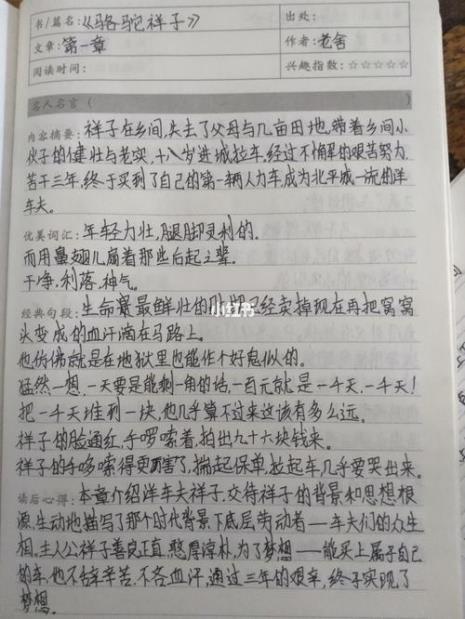 书/篇名:《骆驼祥子》
出处:
文章:第一章
作者:老舍
阅读时间:
兴趣指数:☆☆☆☆☆
名人名言( )
内容摘要:祥子在乡间,失去了父母与几亩田地,带着乡间小
伙子的健壮与老实,十八岁进城拉车,经过不懈的艰苦努力
苦干三年,终于买到了自己的第一辆人力车,成为北平城一流的洋
车夫。
优美词汇:年轻力壮,腿脚灵利的.
而用鼻翅儿扇着那些后起之辈.
干净.利落.神气。
经典句段:生命最鲜壮的 已经卖掉现在再把窝窝
头变成的血汗滴在马路上。
也仿佛就是在地狱里也能作个好鬼似的。
猛然一想.一天要是能剩一角的话,一百元就是一千天.一千天!
把一千天堆到一块,他几乎算不过来这该有多么远。
祥子的脸通红,手哆嗦着,拍出九十六块钱来。
祥子的手哆嗦得更厉害了,揣起保单,拉起车,几乎要哭出来。
读后心得:本章介绍洋车夫祥子,交待祥子的背景和思想根
源,生动地描写了那个时代背景下底层劳动者——车夫们的众生
相.主人公祥子善良正直.憨厚淳朴,为了梦想——能买上属于自己
的车,他不辞辛苦.不吝血汗,通过三年的艰辛,终于实现了
梦想.
小红书